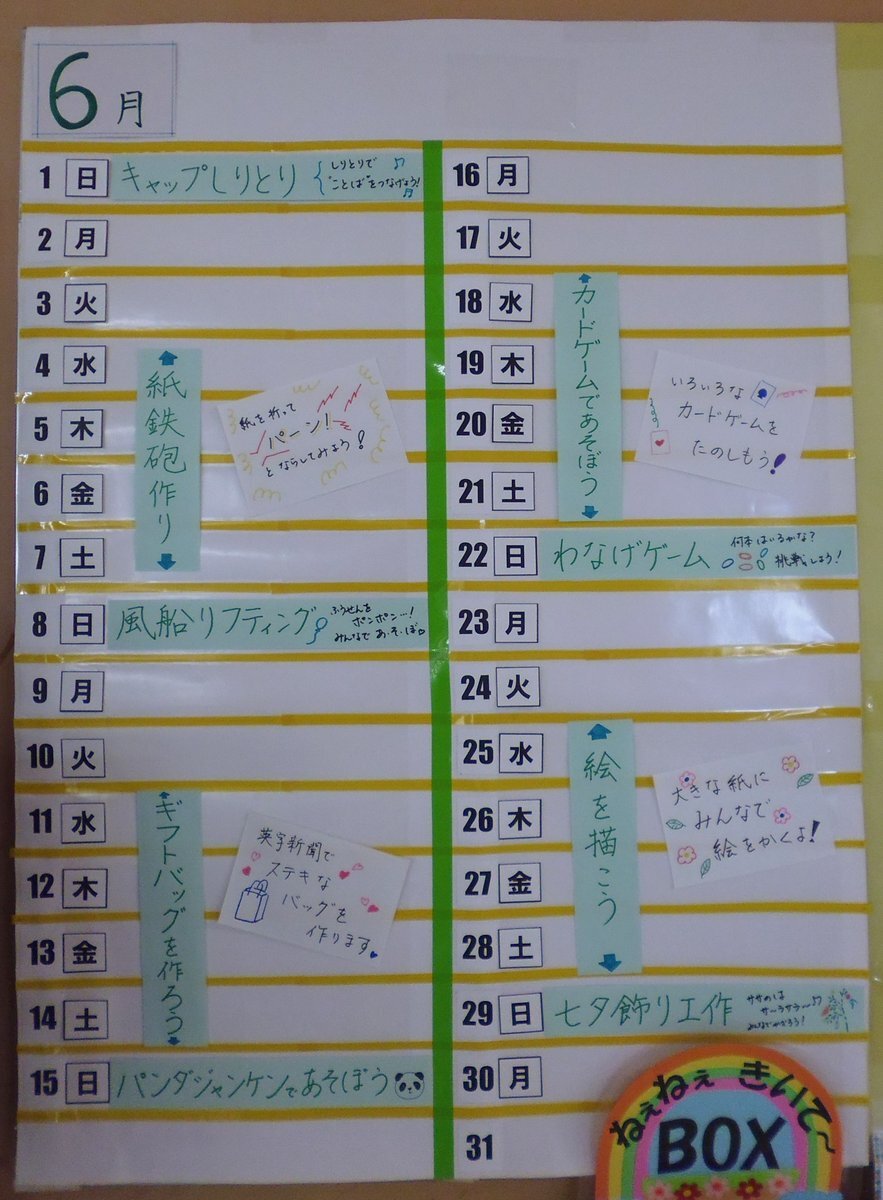 6月
1 日 キャップしりとり しりとりで
"ことば"をつなげよう!
2 月
3 火
4 水
5 木
6 金
7 土
紙鉄砲作り
紙を折って
パーン!
とならしてみよう!
8 日 風船リフティング ふうせんを
ポンポン…!
みんなで あ・そ・ぼ
9 月
10 火
11 水
12 木
13 金
14 土
ギフトバッグを作ろう
英字新聞で
ステキな
バッグを
作ります
15 日 パンダジャンケンであそぼう
16 月
17 火
18 水
19 木
20 金
21 土
カードゲームであそぼう
いろいろな
カードゲームを
たのしもう!
22 日 わなげゲーム 何本はいるかな?
挑戦しよう!
23 月
24 火
25 水
26 木
27 金
28 土
絵を描こう
大きな紙に
みんなで
絵をかくよ!
29 日 七夕飾り工作 ササのは
サ〜ラサラ〜♪
30 月
31
ねぇねぇ きいて〜
BOX